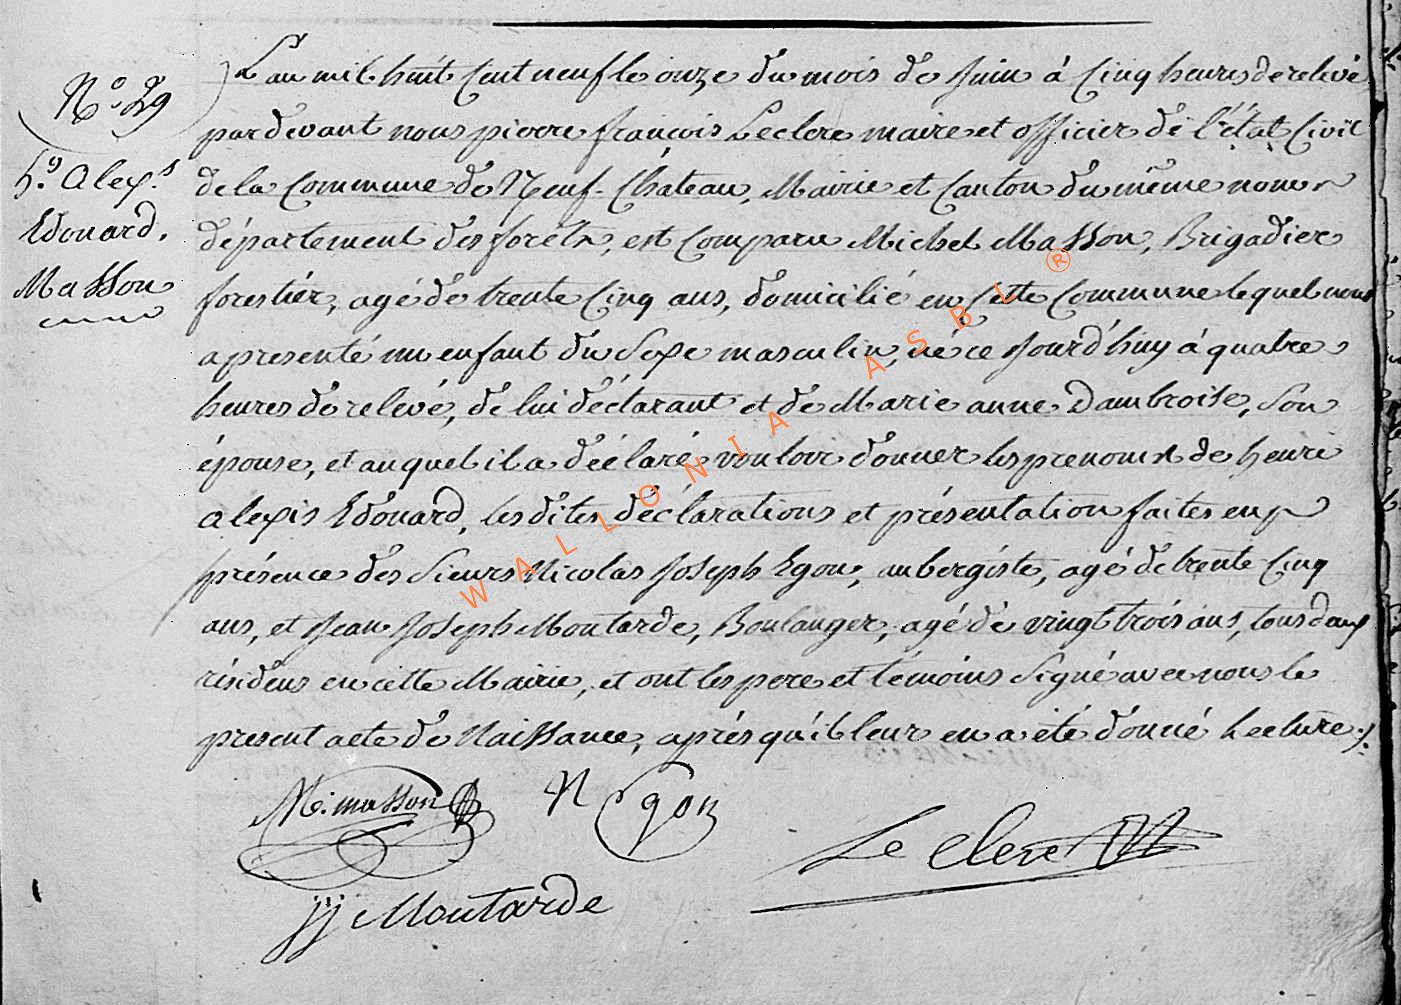 N.º 29
h.i Alex.s
Edouard.
Masson
L'an mil huit cent neuf le onze du mois de Juin à cinq heures de relevé
pardevant nous pierre françois Leclere maire et officier de l'état Civil
de la Commune de Neuf-Château, Mairie et Canton du même nom
département des forêts, est comparu Michel Masson, Brigadier
forestiér, agé de trente Cinq ans, domicilié en cette Commune lequel nous
a presenté un enfant du Sexe masculin, né ce Jourd'huy à quatre
heures de relevé, de lui déclarant et de Marie anne Dambroise, Son
épouse, et auquel il a déclaré vouloir donner les prenoms de hénri
alexis Edouard, les dites déclarations et présentation faites en
présence des Sieurs Nicolas Joseph Egon, aubergiste, agé de trente Cinq
ans, et Jean Joseph Moutarde, Boulanger, agé de vingt trois ans, tous deux
résidens en cette Mairie, et ont les pere et témoins Signé avec nous le
present acte de Naissance, après qu'il leur en a été donné Lecture ./.
M: masson
N Egon
Le clere
jj Moutarde
WALLONIA ASBL ®